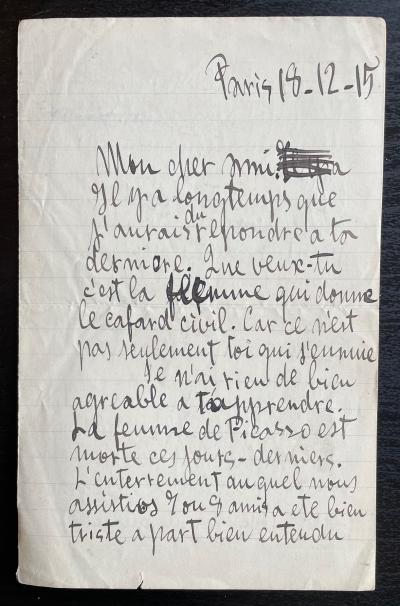 Paris 18-12-15
Mon cher ami.
Il y a longtemps que
j'aurais du repondre a ta
derniere. Que veux-tu
c'est la flemme qui donne
le cafard civil. Car ce n'est
pas seulement toi qui s'ennuie
Je n'ai rien de bien
agreable a t'apprendre.
La femme de Picasso est
morte ces jours-derniers.
L'enterrement auquel nous
assistios 7 ou 8 amis a ete bien
triste a part bien entendu